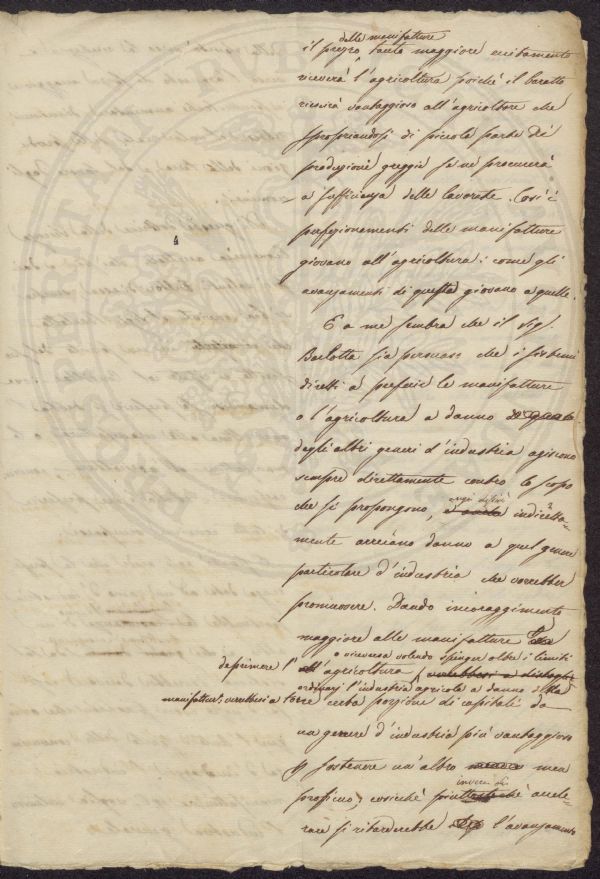 delle manifatture
il prezzo tanto maggiore eccitamento
riceverà l'agricoltura poichè il baratto
riescirà vantaggioso all'agricoltore che
spropriandosi di piccola parte di
produzioni greggie se ne procurerà
a sufficienza delle lavorate. Così i
perfezionamenti delle manifatture
giovano all'agricoltura: come gli
avanzamenti di questa giovano a quelle.
4
E a me sembra che il sig.
Barlotta sia persuaso che i sistemi
diretti a preferire le manifatture
o l'agricoltura a danno
degli altri generi d'industria agiscono
sempre direttamente contro lo scopo
che si propongono, indiretta-
mente arrecano danno a quel genere
particolare d'industria che vorrebber
promuovere. Dando incoraggimento
maggiore alle manifatture
o viceversa volendo spinger oltre i limiti
deprimere l'agricoltura
ordinarj l'industria agricola a danno delle
manifatture, verrebbesi a torre certa porzione di capitali da
un genere d'industria più vantaggioso
p sostenere un'altro men
invece di
proficuo; cosicchè accele-
rare si ritarderebbe l'avanzamento